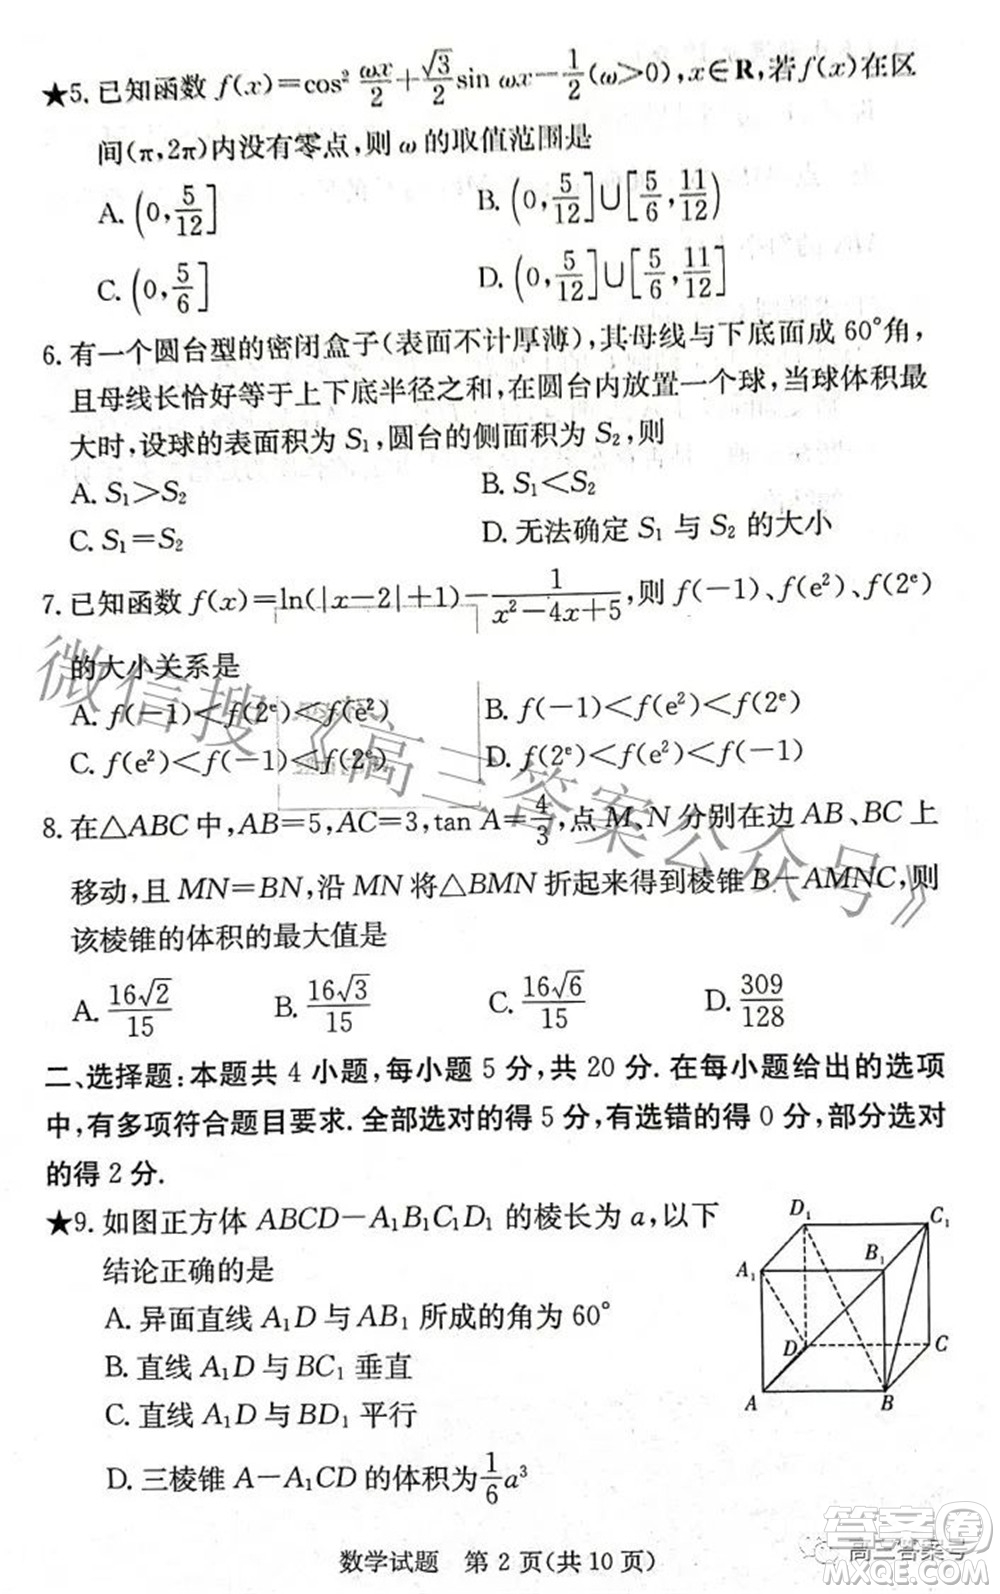 ★5. 已知函数 f(x)=cos²ωx/2+√3/2 sin ωx−1/2(ω>0),x∈R,若 f(x)在区
间(π,2π)内没有零点,则 ω 的取值范围是
A. (0,5/12] B. (0,5/12]∪[5/6,11/12)
C. (0,5/6] D. (0,5/12]∪[5/6,11/12]
6. 有一个圆台型的密闭盒子(表面不计厚薄),其母线与下底面成 60°角,
且母线长恰好等于上下底半径之和,在圆台内放置一个球,当球体积最
大时,设球的表面积为 S₁,圆台的侧面积为 S₂,则
A. S₁>S₂ B. S₁<S₂
C. S₁=S₂ D. 无法确定 S₁ 与 S₂ 的大小
7. 已知函数 f(x)=ln(|x−2|+1)−1/(x²−4x+5),则 f(−1)、f(e²)、f(2ᵉ)
的大小关系是
A. f(−1)<f(2ᵉ)<f(e²) B. f(−1)<f(e²)<f(2ᵉ)
C. f(e²)<f(−1)<f(2ᵉ) D. f(2ᵉ)<f(e²)<f(−1)
8. 在△ABC 中,AB=5,AC=3,tan A=4/3,点 M、N 分别在边 AB、BC 上
移动,且 MN=BN,沿 MN 将△BMN 折起来得到棱锥 B−AMNC,则
该棱锥的体积的最大值是
A. 16√2/15 B. 16√3/15 C. 16√6/15 D. 309/128
二、选择题:本题共 4 小题,每小题 5 分,共 20 分. 在每小题给出的选项
中,有多项符合题目要求. 全部选对的得 5 分,有选错的得 0 分,部分选对
的得 2 分.
★9. 如图正方体 ABCD−A₁B₁C₁D₁ 的棱长为 a,以下
结论正确的是
A. 异面直线 A₁D 与 AB₁ 所成的角为 60°
B. 直线 A₁D 与 BC₁ 垂直
C. 直线 A₁D 与 BD₁ 平行
D. 三棱锥 A−A₁CD 的体积为1/6a³
D₁ C₁
A₁ B₁
D C
A B
数学试题 第 2 页(共 10 页)
微信搜《高三答案公众号》
高三答案号
答案圈
MXQE.COM